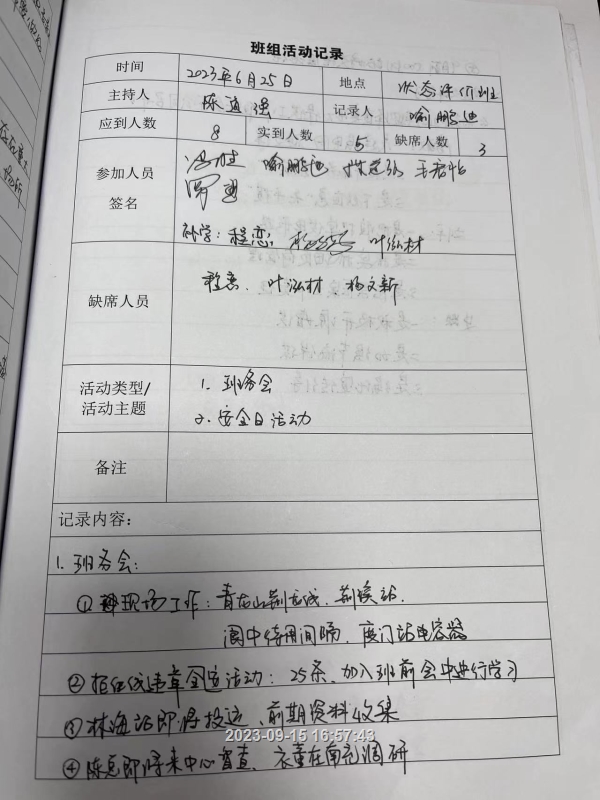 班组活动记录
时间 2023年6月25日 地点 状态评价班
主持人 陈道强 记录人 喻鹏迪
应到人数 8 实到人数 5 缺席人数 3
参加人员 喻鹏迪
签名
补学：程恋 叶泓材
缺席人员 程恋、叶泓材 杨文新
活动类型/ 1、班务会
活动主题 2、安全日活动
备注
记录内容：
1、班务会：
① 现场工作：青龙山 荆溪站、
阆中待用间隔、度门站电容器
② 违章 活动：25条，加入班前会中进行学习
③ 林海站即将投运、前期资料收集
2023-09-15 16:57:43
④ 陈总即将来中心督查、 在南充调研